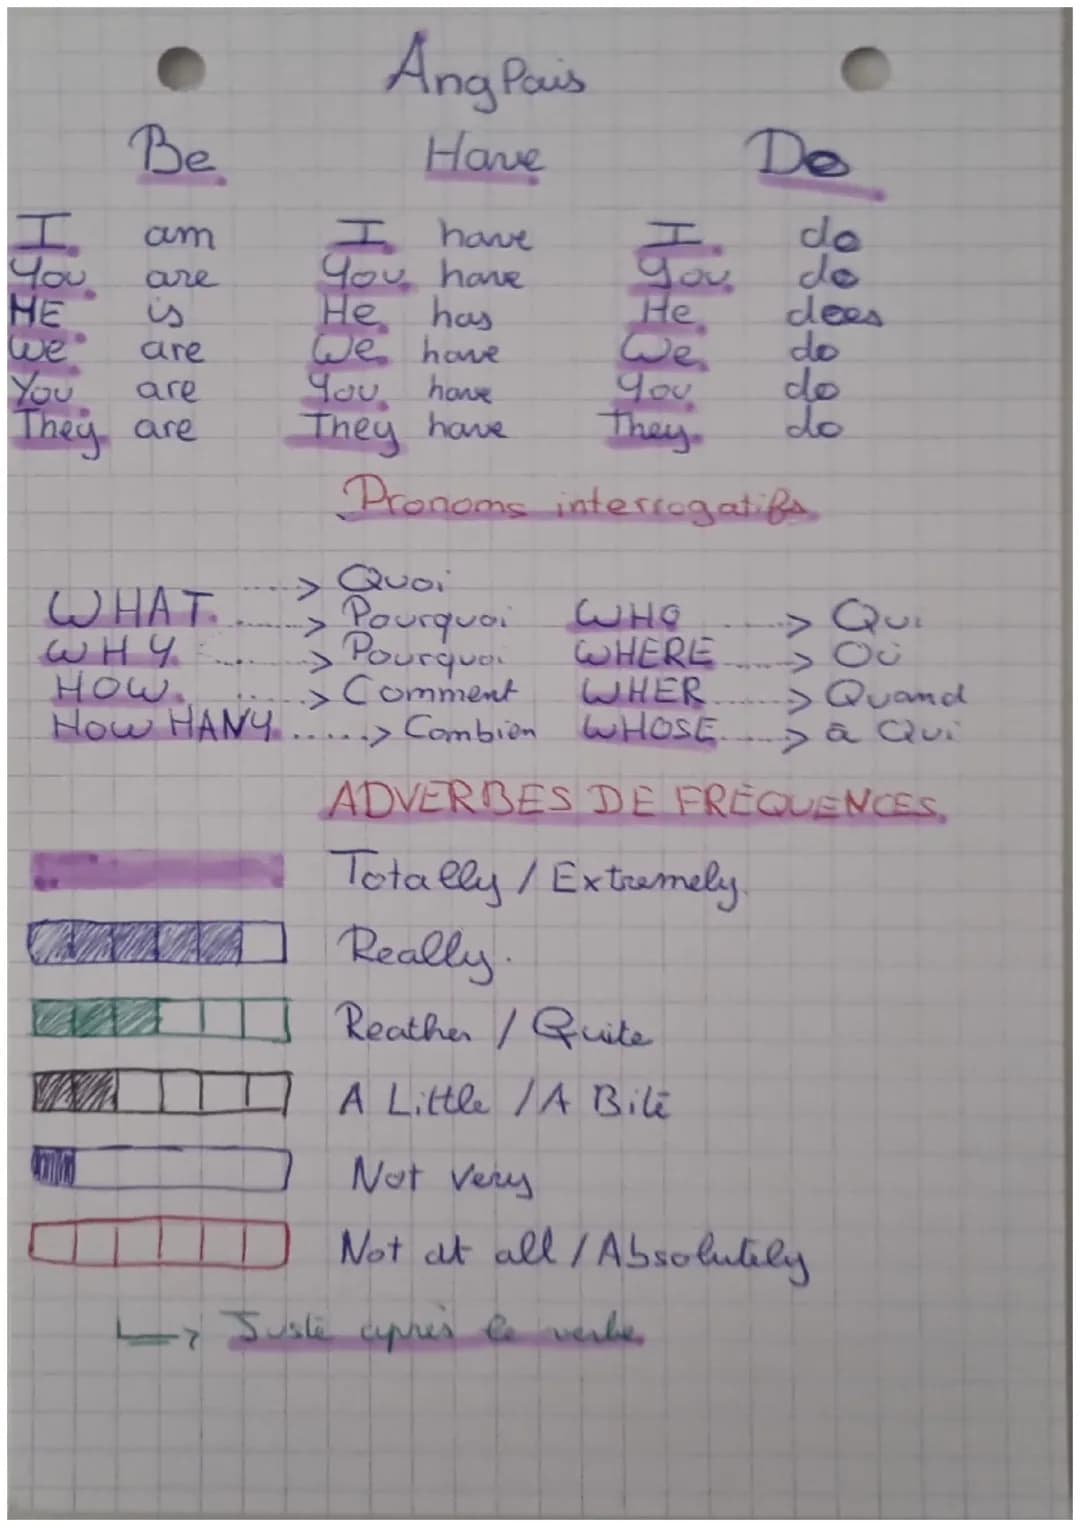 Anglais
Be Have Do
I am I have I do
You are You have You do
HE is He has He does
We are We have We do
You are You have You do
They are They have They do
Pronoms interrogatifs
WHAT ......> Quoi
......> Pourquoi WHO ......> Qui
WHY ......> Pourquoi WHERE ......> Où
HOW ......> Comment WHER ......> Quand
HOW HANY ......> Combien WHOSE ......> à Qui
ADVERBES DE FRÉQUENCES.
Totally / Extremely.
Really.
Reather / Quite
A Little / A Bite
Not very
Not at all / Absolutely
↳ Juste après le verbe.